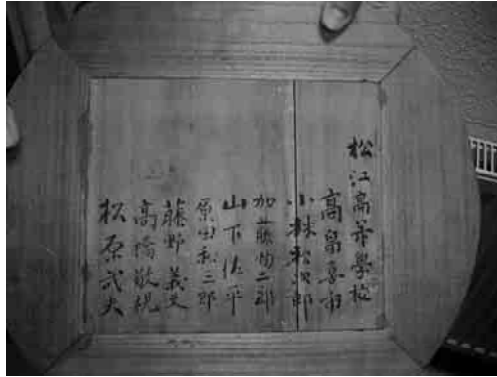 松江高等學校
高畠喜市
小林松次郎
加藤勘二郎
山下佐平
原田和三郎
藤野義夫
高橋敬視
松原武夫